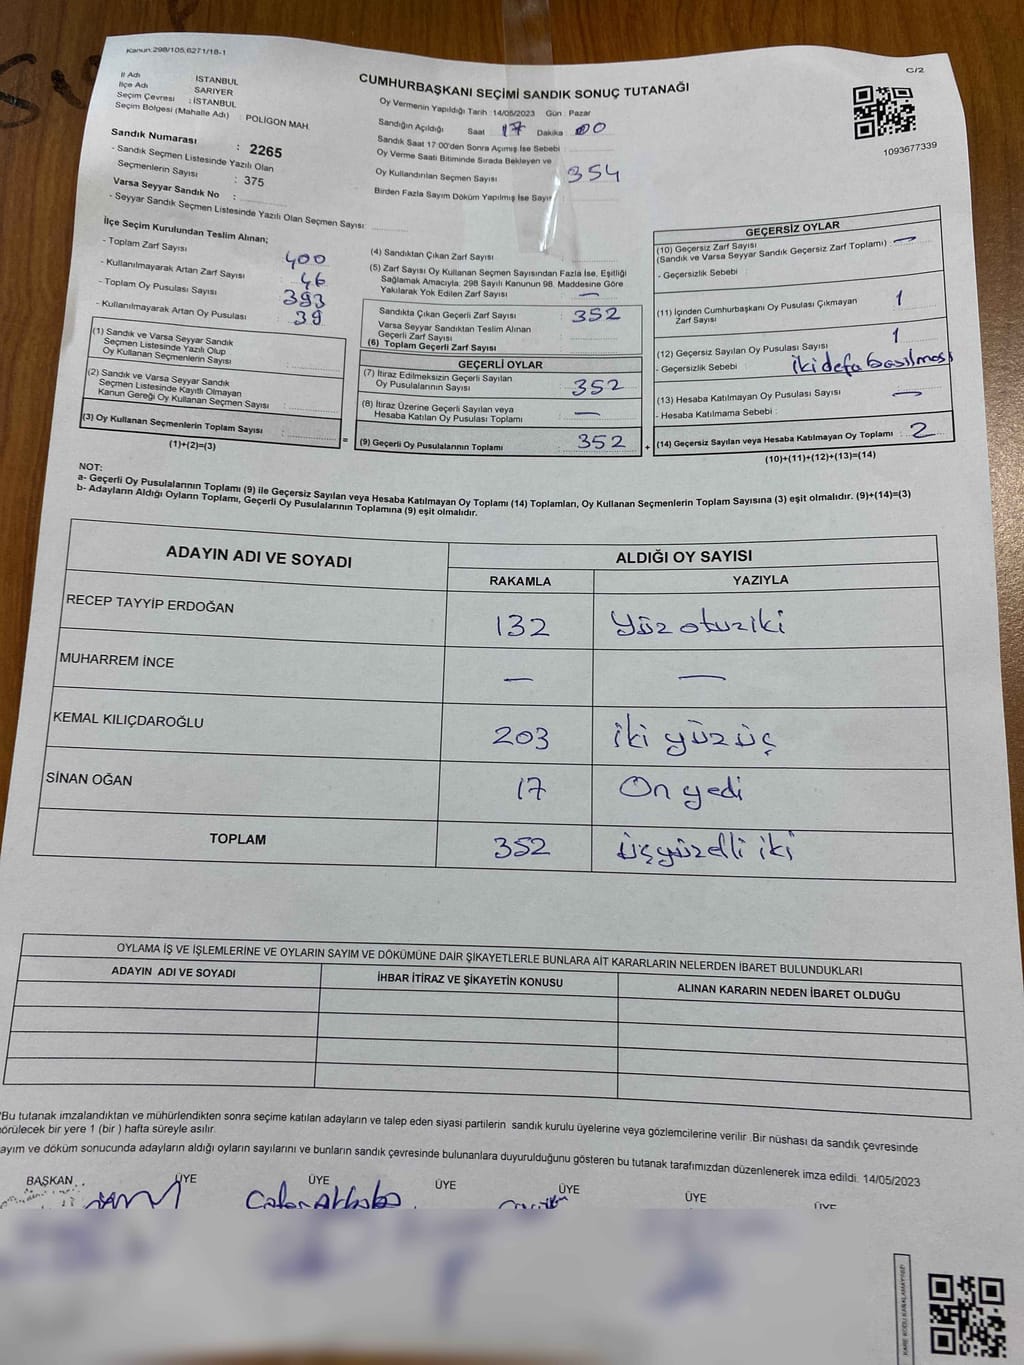 Kanun:298/105,6271/18-1
C/2
CUMHURBAŞKANI SEÇİMİ SANDIK SONUÇ TUTANAĞI
İl Adı İSTANBUL
İlçe Adı SARIYER
Seçim Çevresi : İSTANBUL
Seçim Bölgesi (Mahalle Adı) : POLİGON MAH.
Sandık Numarası : 2265
- Sandık Seçmen Listesinde Yazılı Olan
Seçmenlerin Sayısı : 375
Varsa Seyyar Sandık No :
- Seyyar Sandık Seçmen Listesinde Yazılı Olan Seçmen Sayısı:
Oy Vermenin Yapıldığı Tarih :14/05/2023 Gün : Pazar
Sandığın Açıldığı Saat : 17 Dakika : 00
Sandık Saat 17:00'den Sonra Açımış İse Sebebi :
Oy Verme Saati Bitiminde Sırada Bekleyen ve
Oy Kullandırılan Seçmen Sayısı : 354
Birden Fazla Sayım Döküm Yapılmış İse Sayısı
1093677339
İlçe Seçim Kurulundan Teslim Alınan;
- Toplam Zarf Sayısı : 400
- Kullanılmayarak Artan Zarf Sayısı : 46
- Toplam Oy Pusulası Sayısı : 393
- Kullanılmayarak Artan Oy Pusulası : 39
(1) Sandık ve Varsa Seyyar Sandık
Seçmen Listesinde Yazılı Olup
Oy Kullanan Seçmenlerin Sayısı :
(2) Sandık ve Varsa Seyyar Sandık
Seçmen Listesinde Kayıtlı Olmayan
Kanun Gereği Oy Kullanan Seçmen Sayısı :
(3) Oy Kullanan Seçmenlerin Toplam Sayısı :
(1)+(2)=(3)
=
(4) Sandıktan Çıkan Zarf Sayısı :
(5) Zarf Sayısı Oy Kullanan Seçmen Sayısından Fazla İse, Eşitliği
Sağlamak Amacıyla, 298 Sayılı Kanunun 98. Maddesine Göre
Yakılarak Yok Edilen Zarf Sayısı : —
Sandıkta Çıkan Geçerli Zarf Sayısı : 352
Varsa Seyyar Sandıktan Teslim Alınan
Geçerli Zarf Sayısı :
(6) Toplam Geçerli Zarf Sayısı :
GEÇERLİ OYLAR
(7) İtiraz Edilmeksizin Geçerli Sayılan
Oy Pusulalarının Sayısı : 352
(8) İtiraz Üzerine Geçerli Sayılan veya
Hesaba Katılan Oy Pusulası Toplamı : —
(9) Geçerli Oy Pusulalarının Toplamı : 352
+
GEÇERSİZ OYLAR
(10) Geçersiz Zarf Sayısı
(Sandık ve Varsa Seyyar Sandık Geçersiz Zarf Toplamı) : —
- Geçersizlik Sebebi :
(11) İçinden Cumhurbaşkanı Oy Pusulası Çıkmayan
Zarf Sayısı : 1
(12) Geçersiz Sayılan Oy Pusulası Sayısı : 1
- Geçersizlik Sebebi : iki defa basılması
(13) Hesaba Katılmayan Oy Pusulası Sayısı : —
- Hesaba Katılmama Sebebi :
(14) Geçersiz Sayılan veya Hesaba Katılmayan Oy Toplamı : 2
(10)+(11)+(12)+(13)=(14)
NOT:
a- Geçerli Oy Pusulalarının Toplamı (9) ile Geçersiz Sayılan veya Hesaba Katılmayan Oy Toplamı (14) Toplamları, Oy Kullanan Seçmenlerin Toplam Sayısına (3) eşit olmalıdır. (9)+(14)=(3)
b- Adayların Aldığı Oyların Toplamı, Geçerli Oy Pusulalarının Toplamına (9) eşit olmalıdır.
ADAYIN ADI VE SOYADI ALDIĞI OY SAYISI
RAKAMLA YAZIYLA
RECEP TAYYİP ERDOĞAN 132 Yüz otuziki
MUHARREM İNCE — —
KEMAL KILIÇDAROĞLU 203 iki yüz üç
SİNAN OĞAN 17 On yedi
TOPLAM 352 üçyüzelli iki
OYLAMA İŞ VE İŞLEMLERİNE VE OYLARIN SAYIM VE DÖKÜMÜNE DAİR ŞİKAYETLERLE BUNLARA AİT KARARLARIN NELERDEN İBARET BULUNDUKLARI
ADAYIN ADI VE SOYADI İHBAR İTİRAZ VE ŞİKAYETİN KONUSU ALINAN KARARIN NEDEN İBARET OLDUĞU
Bu tutanak imzalandıktan ve mühürlendikten sonra seçime katılan adayların ve talep eden siyasi partilerin sandık kurulu üyelerine veya gözlemcilerine verilir. Bir nüshası da sandık çevresinde
görülecek bir yere 1 (bir ) hafta süreyle asılır.
ayım ve döküm sonucunda adayların aldığı oyların sayılarını ve bunların sandık çevresinde bulunanlara duyurulduğunu gösteren bu tutanak tarafımızdan düzenlenerek imza edildi. 14/05/2023
BAŞKAN ÜYE ÜYE ÜYE ÜYE ÜYE ÜYE